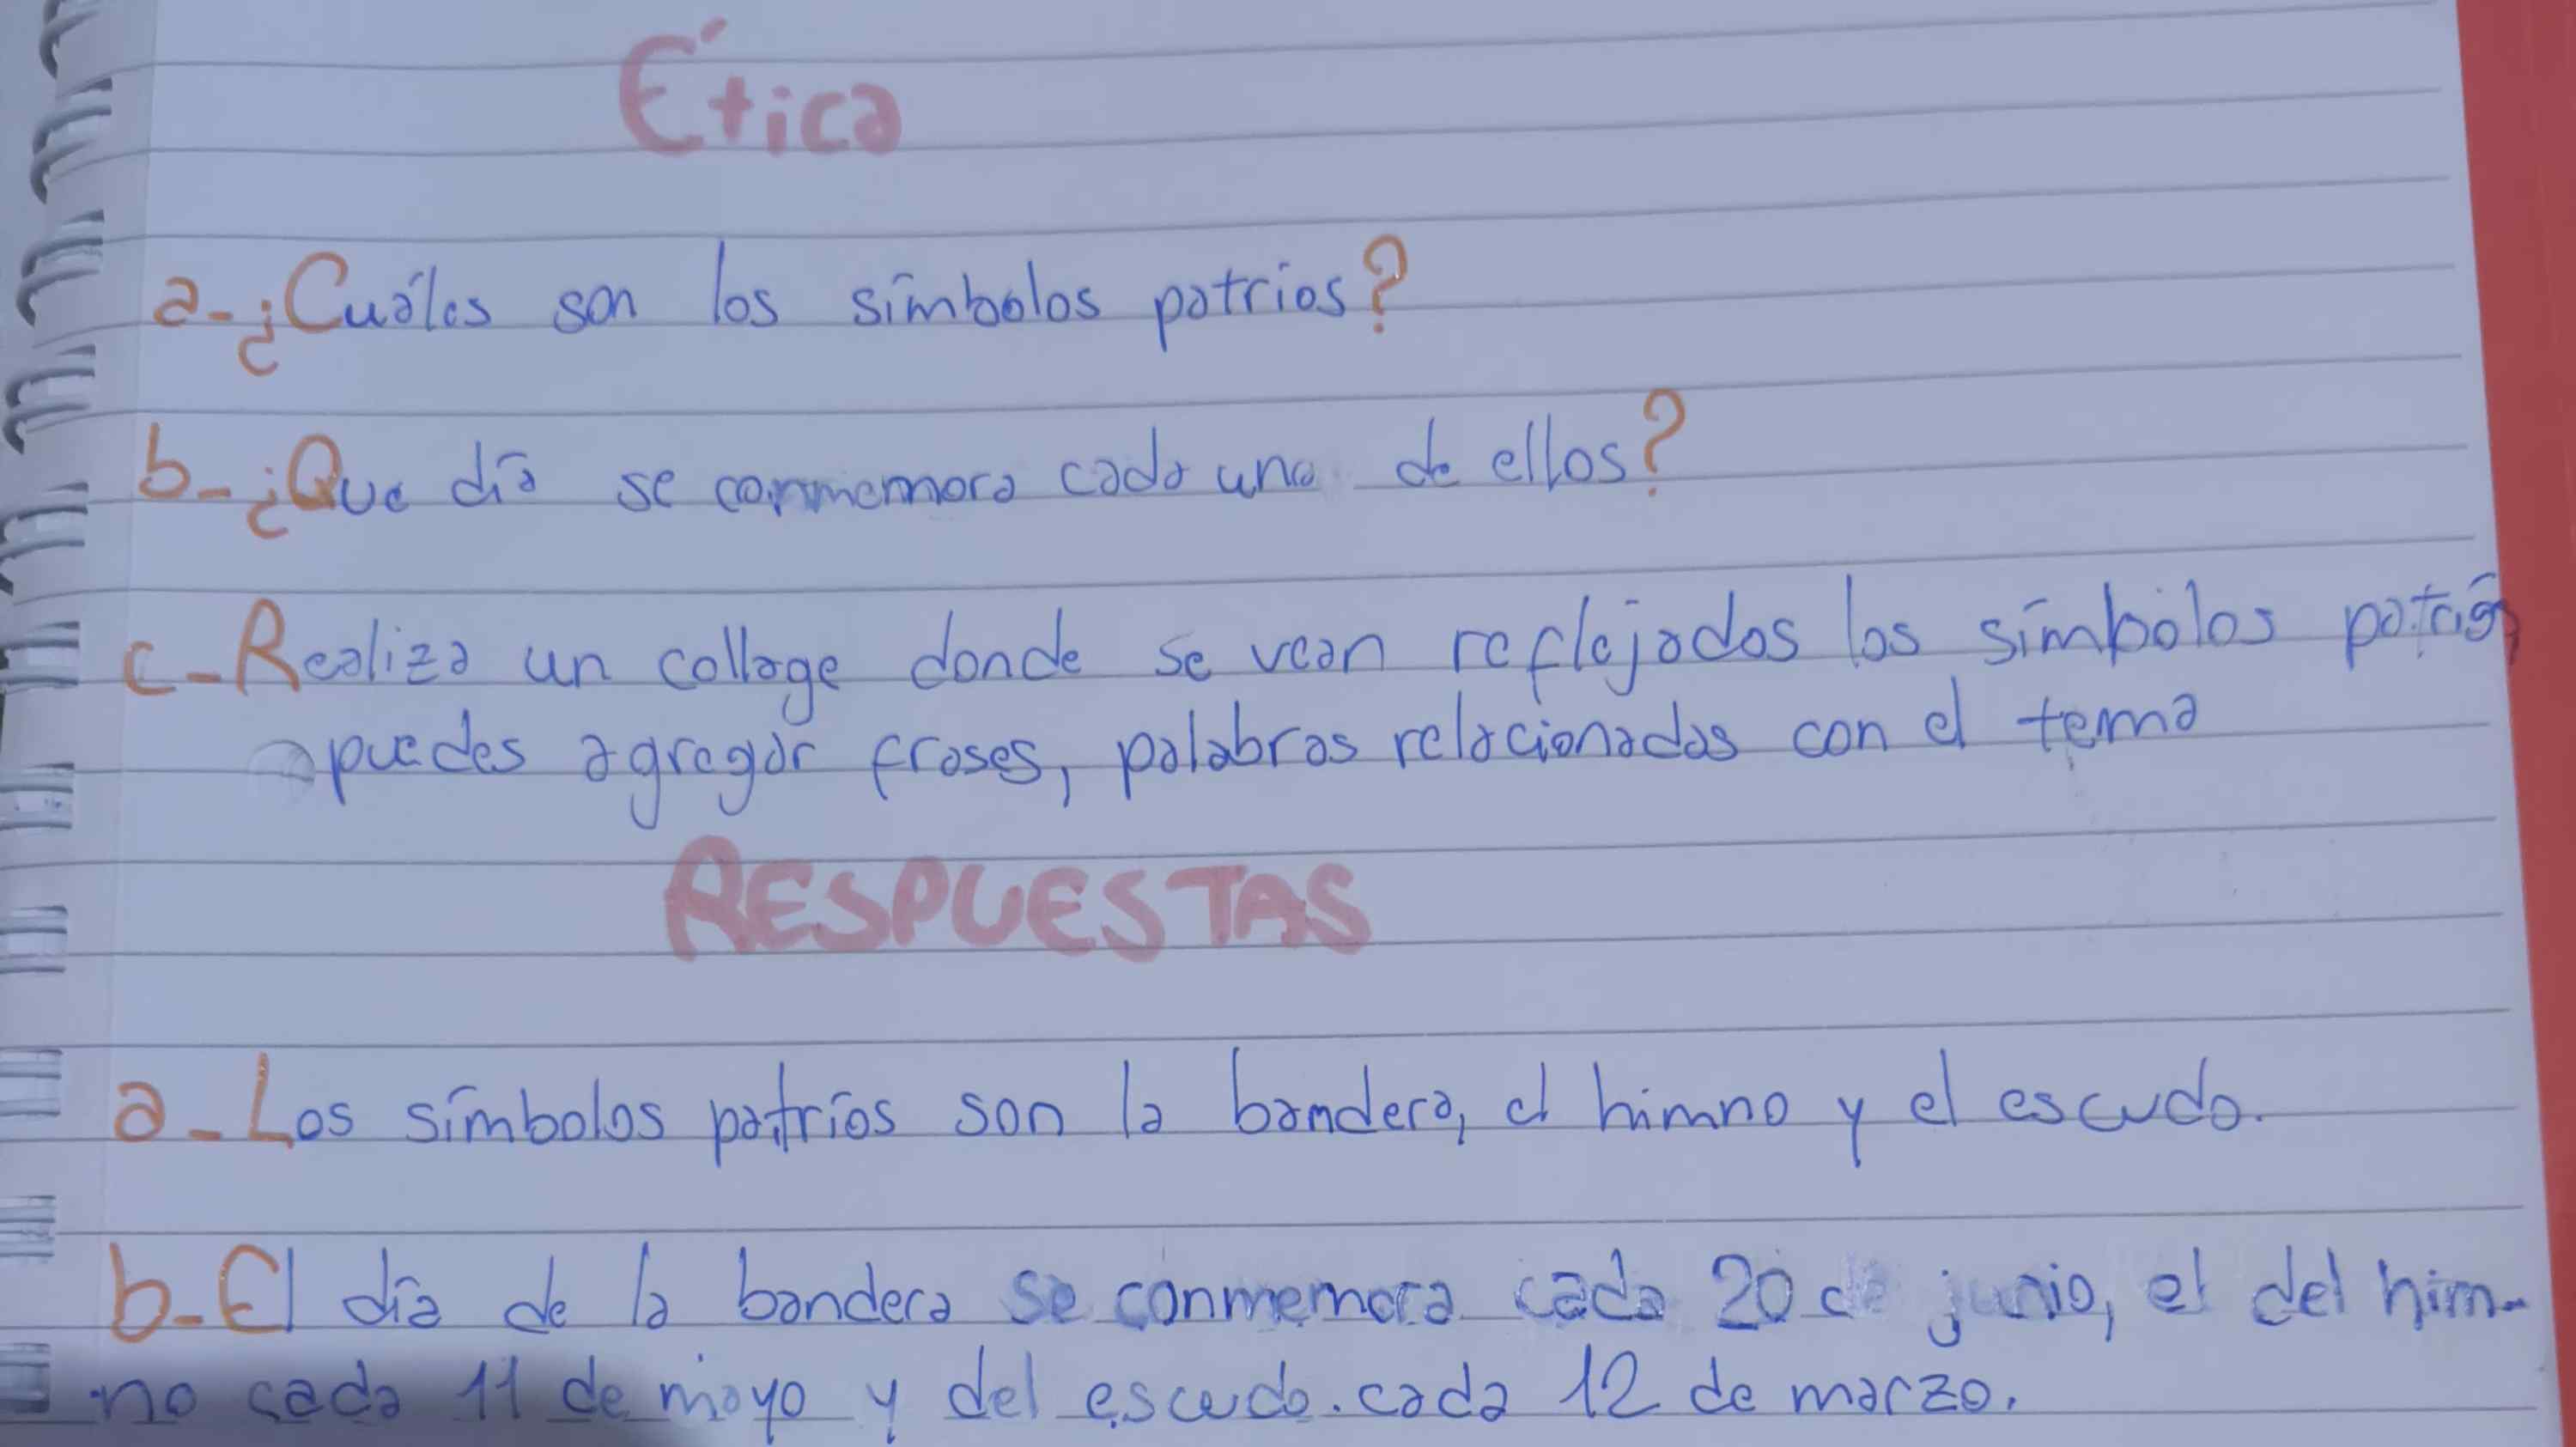 Ética
a-¿Cuáles son los símbolos patrios?
b-¿Que día se conmemora cada uno de ellos?
c-Realiza un collage donde se vean reflejados los símbolos patrios
puedes agregar frases, palabras relacionadas con el tema
RESPUESTAS
a-Los símbolos patrios son la bandera, el himno y el escudo.
b-El día de la bandera se conmemora cada 20 de junio, el del him-
no cada 11 de mayo y del escudo cada 12 de marzo.